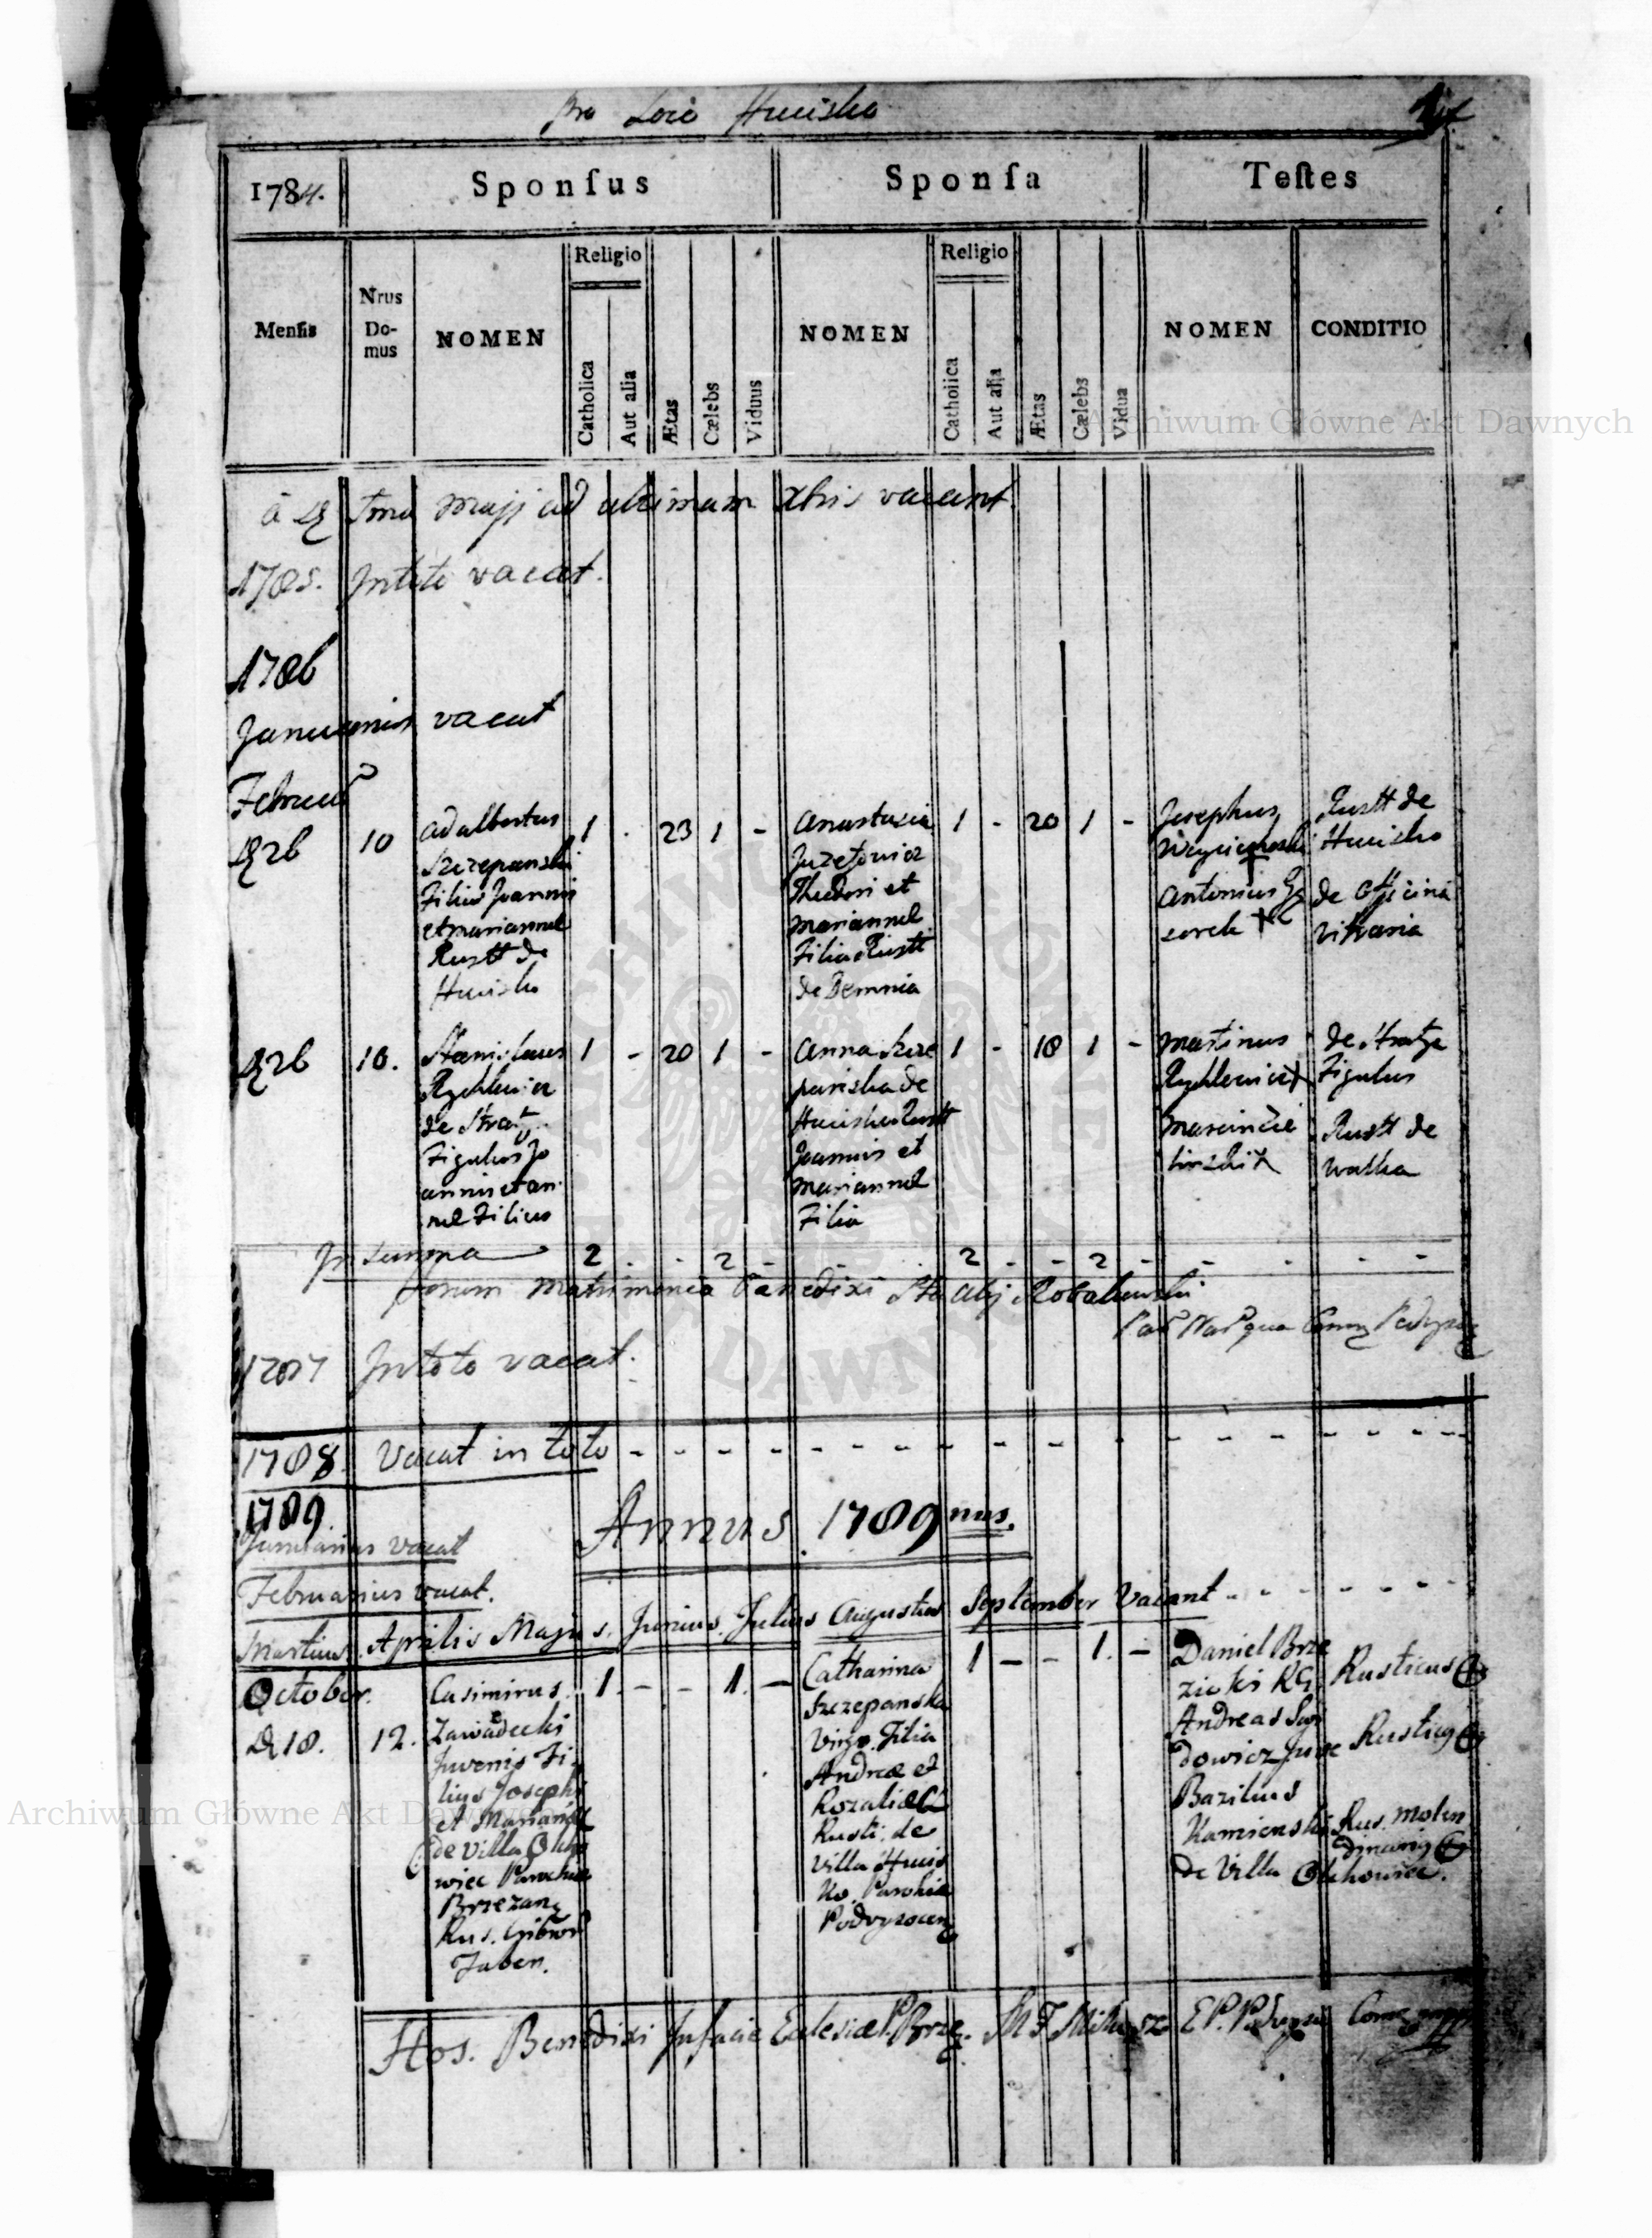 Pro Loco Hucisko
1784.
Sponſus
Sponſa
Teſtes
Menſis
Nrus Do-mus
NOMEN
Religio
Catholica
Aut alia
Ætas
Cælebs
Viduus
NOMEN
Religio
Catholica
Aut alia
Ætas
Cælebs
Vidua
NOMEN
CONDITIO
Archiwum Główne Akt Dawnych
Maji ad ultimam Xbris vacant.
1785. In toto vacat.
1786
Januarius vacat
Februar
26
10
Adalbertus
Szczepanski
Filius Joannis
et Mariannæ
Rustt de
Huisko
1 - 23 1 -
Anastasia
Juzefowicz
Theodori et
Mariannæ
Filia Rustt
de Demnia
1 - 20 1 -
Josephus
Antonius
Rustt de
Huisko
de Officina
vitraria
26
10.
Stanislaus
Rychlewicz
de Strat
Figulus Jo
annis et An
næ Filius
1 - 20 1 -
Anna Szcze
panska de
Huisko Rustt
Joannis et
Mariannæ
Filia
1 - 18 1 -
Martinus
Rychlewicz
Marcin
Figulus
Rustt de
Walka
In summa 2 - - 2 - 2 - - 2 - - - - -
Matrimonia Benedixi
1787 In toto vacat.
1788. Vacat in toto
1789
Annus 1789nus.
Januarius vacat
Februarius vacat.
Martius. Aprilis Majus. Junius. Julius Augustus September Vacant
October.
18.
12.
Casimirus
Zawadecki
Juvenis Fi
lius Josephi
et Mariannæ
de Villa Olcho
wiec Parochiæ
Brzezan
Rus.
1. - - 1. -
Catharina
Szczepanska
Virgo. Filia
Andreæ et
Rozaliæ
Rusti. de
Villa Huis
ko. Parohiæ
Podwysocen
1 - - 1. -
Daniel Brze
zicki
Andreas
dowicz
Bazilius
Kamienski
de Villa Olchowiec.
Rusticus
Rusticus
Rus. Molen
dinarius
Archiwum Główne Akt Dawnych
Hos. Benedixi In facie Eclesiæ
ARCHIWUM GŁÓWNE AKT DAWNYCH